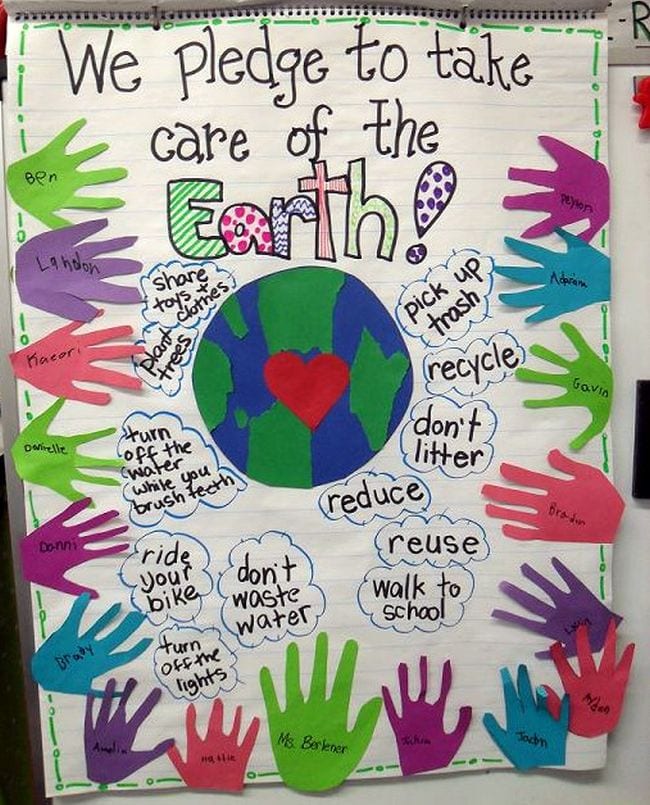 We pledge to take
care of the
Earth!
share
toys +
clothes
plant
trees
turn
off the
water
while you
brush teeth
ride
your
bike
don't
waste
water
turn
off the
lights
pick up
trash
recycle
don't
litter
reduce
reuse
walk to
school
Ben
Landon
Kaeori
Danielle
Danni
Brady
Amelia
Hattie
Ms. Berlener
Peyton
Gavin
Jadon
Ayden
R